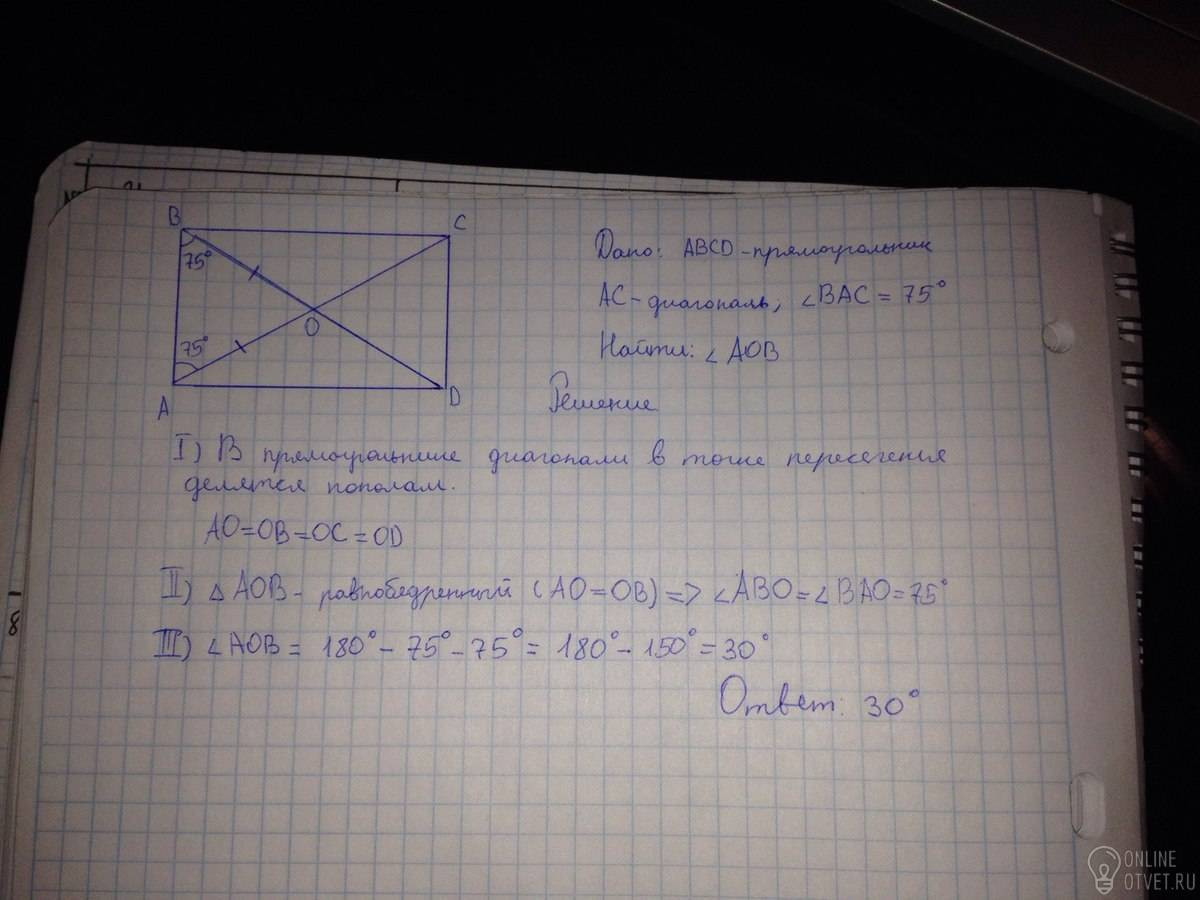 B
C
75°
75°
O
A
D
Дано: ABCD - прямоугольник
AC - диагональ, ∠BAC = 75°
Найти: ∠ AOB
Решение
I) В прямоугольнике диагонали в точке пересечения
делятся пополам.
AO=OB=OC=OD
II) △ AOB - равнобедренный (AO=OB) => ∠ABO=∠BAO=75°
III) ∠AOB = 180° - 75° - 75° = 180° - 150° = 30°
Ответ: 30°
8
ONLINE
OTVET.RU